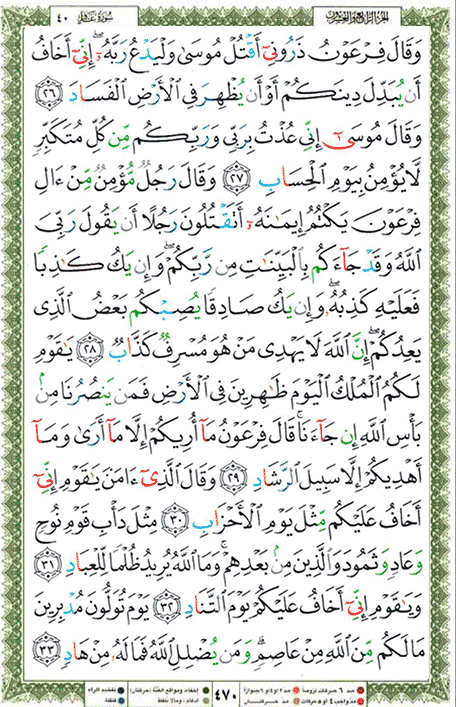 الجزء الرابع والعشرون
سورة غافر ٤٠
وَقَالَ فِرْعَوْنُ ذَرُونِيٓ أَقْتُلْ مُوسَىٰ وَلْيَدْعُ رَبَّهُۥٓ ۖ إِنِّيٓ أَخَافُ
أَن يُبَدِّلَ دِينَكُمْ أَوْ أَن يُظْهِرَ فِي ٱلْأَرْضِ ٱلْفَسَادَ ٢٦
وَقَالَ مُوسَىٰٓ إِنِّي عُذْتُ بِرَبِّي وَرَبِّكُم مِّن كُلِّ مُتَكَبِّرٍ
لَّا يُؤْمِنُ بِيَوْمِ ٱلْحِسَابِ ٢٧ وَقَالَ رَجُلٌ مُّؤْمِنٌ مِّنْ ءَالِ
فِرْعَوْنَ يَكْتُمُ إِيمَٰنَهُۥٓ أَتَقْتُلُونَ رَجُلًا أَن يَقُولَ رَبِّيَ
ٱللَّهُ وَقَدْ جَآءَكُم بِٱلْبَيِّنَٰتِ مِن رَّبِّكُمْ ۖ وَإِن يَكُ كَٰذِبًا
فَعَلَيْهِ كَذِبُهُۥ ۖ وَإِن يَكُ صَادِقًا يُصِبْكُم بَعْضُ ٱلَّذِي
يَعِدُكُمْ ۖ إِنَّ ٱللَّهَ لَا يَهْدِي مَنْ هُوَ مُسْرِفٌ كَذَّابٌ ٢٨ يَٰقَوْمِ
لَكُمُ ٱلْمُلْكُ ٱلْيَوْمَ ظَٰهِرِينَ فِي ٱلْأَرْضِ فَمَن يَنصُرُنَا مِنۢ
بَأْسِ ٱللَّهِ إِن جَآءَنَا ۚ قَالَ فِرْعَوْنُ مَآ أُرِيكُمْ إِلَّا مَآ أَرَىٰ وَمَآ
أَهْدِيكُمْ إِلَّا سَبِيلَ ٱلرَّشَادِ ٢٩ وَقَالَ ٱلَّذِيٓ ءَامَنَ يَٰقَوْمِ إِنِّيٓ
أَخَافُ عَلَيْكُم مِّثْلَ يَوْمِ ٱلْأَحْزَابِ ٣٠ مِثْلَ دَأْبِ قَوْمِ نُوحٍ
وَعَادٍ وَثَمُودَ وَٱلَّذِينَ مِنۢ بَعْدِهِمْ ۚ وَمَا ٱللَّهُ يُرِيدُ ظُلْمًا لِّلْعِبَادِ ٣١
وَيَٰقَوْمِ إِنِّيٓ أَخَافُ عَلَيْكُمْ يَوْمَ ٱلتَّنَادِ ٣٢ يَوْمَ تُوَلُّونَ مُدْبِرِينَ
مَا لَكُم مِّنَ ٱللَّهِ مِنْ عَاصِمٍ ۗ وَمَن يُضْلِلِ ٱللَّهُ فَمَا لَهُۥ مِنْ هَادٍ ٣٣
مد ٦ حركات لزوما مد ٢ او ٤ او ٦ جوازا
مد واجب ٤ او ٥ حركات مد حركتان
٤٧٠
إخفاء، ومواقع الغنة (حركتان) تفخيم الراء
إدغام، وما لا يلفظ قلقلة